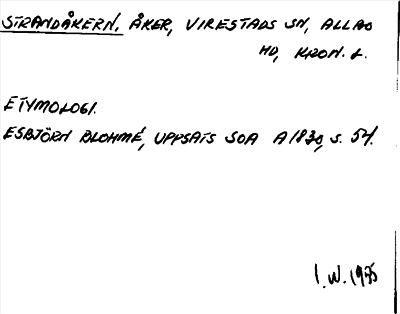 STRANDÅKERN, ÅKER, VIRESTADS SN, ALLBO
HD, KRON. L.
ETYMOLOGI.
ESBJÖRN BLOHMÉ, UPPSATS SOA A 1830, S. 54.
I. W. 1975